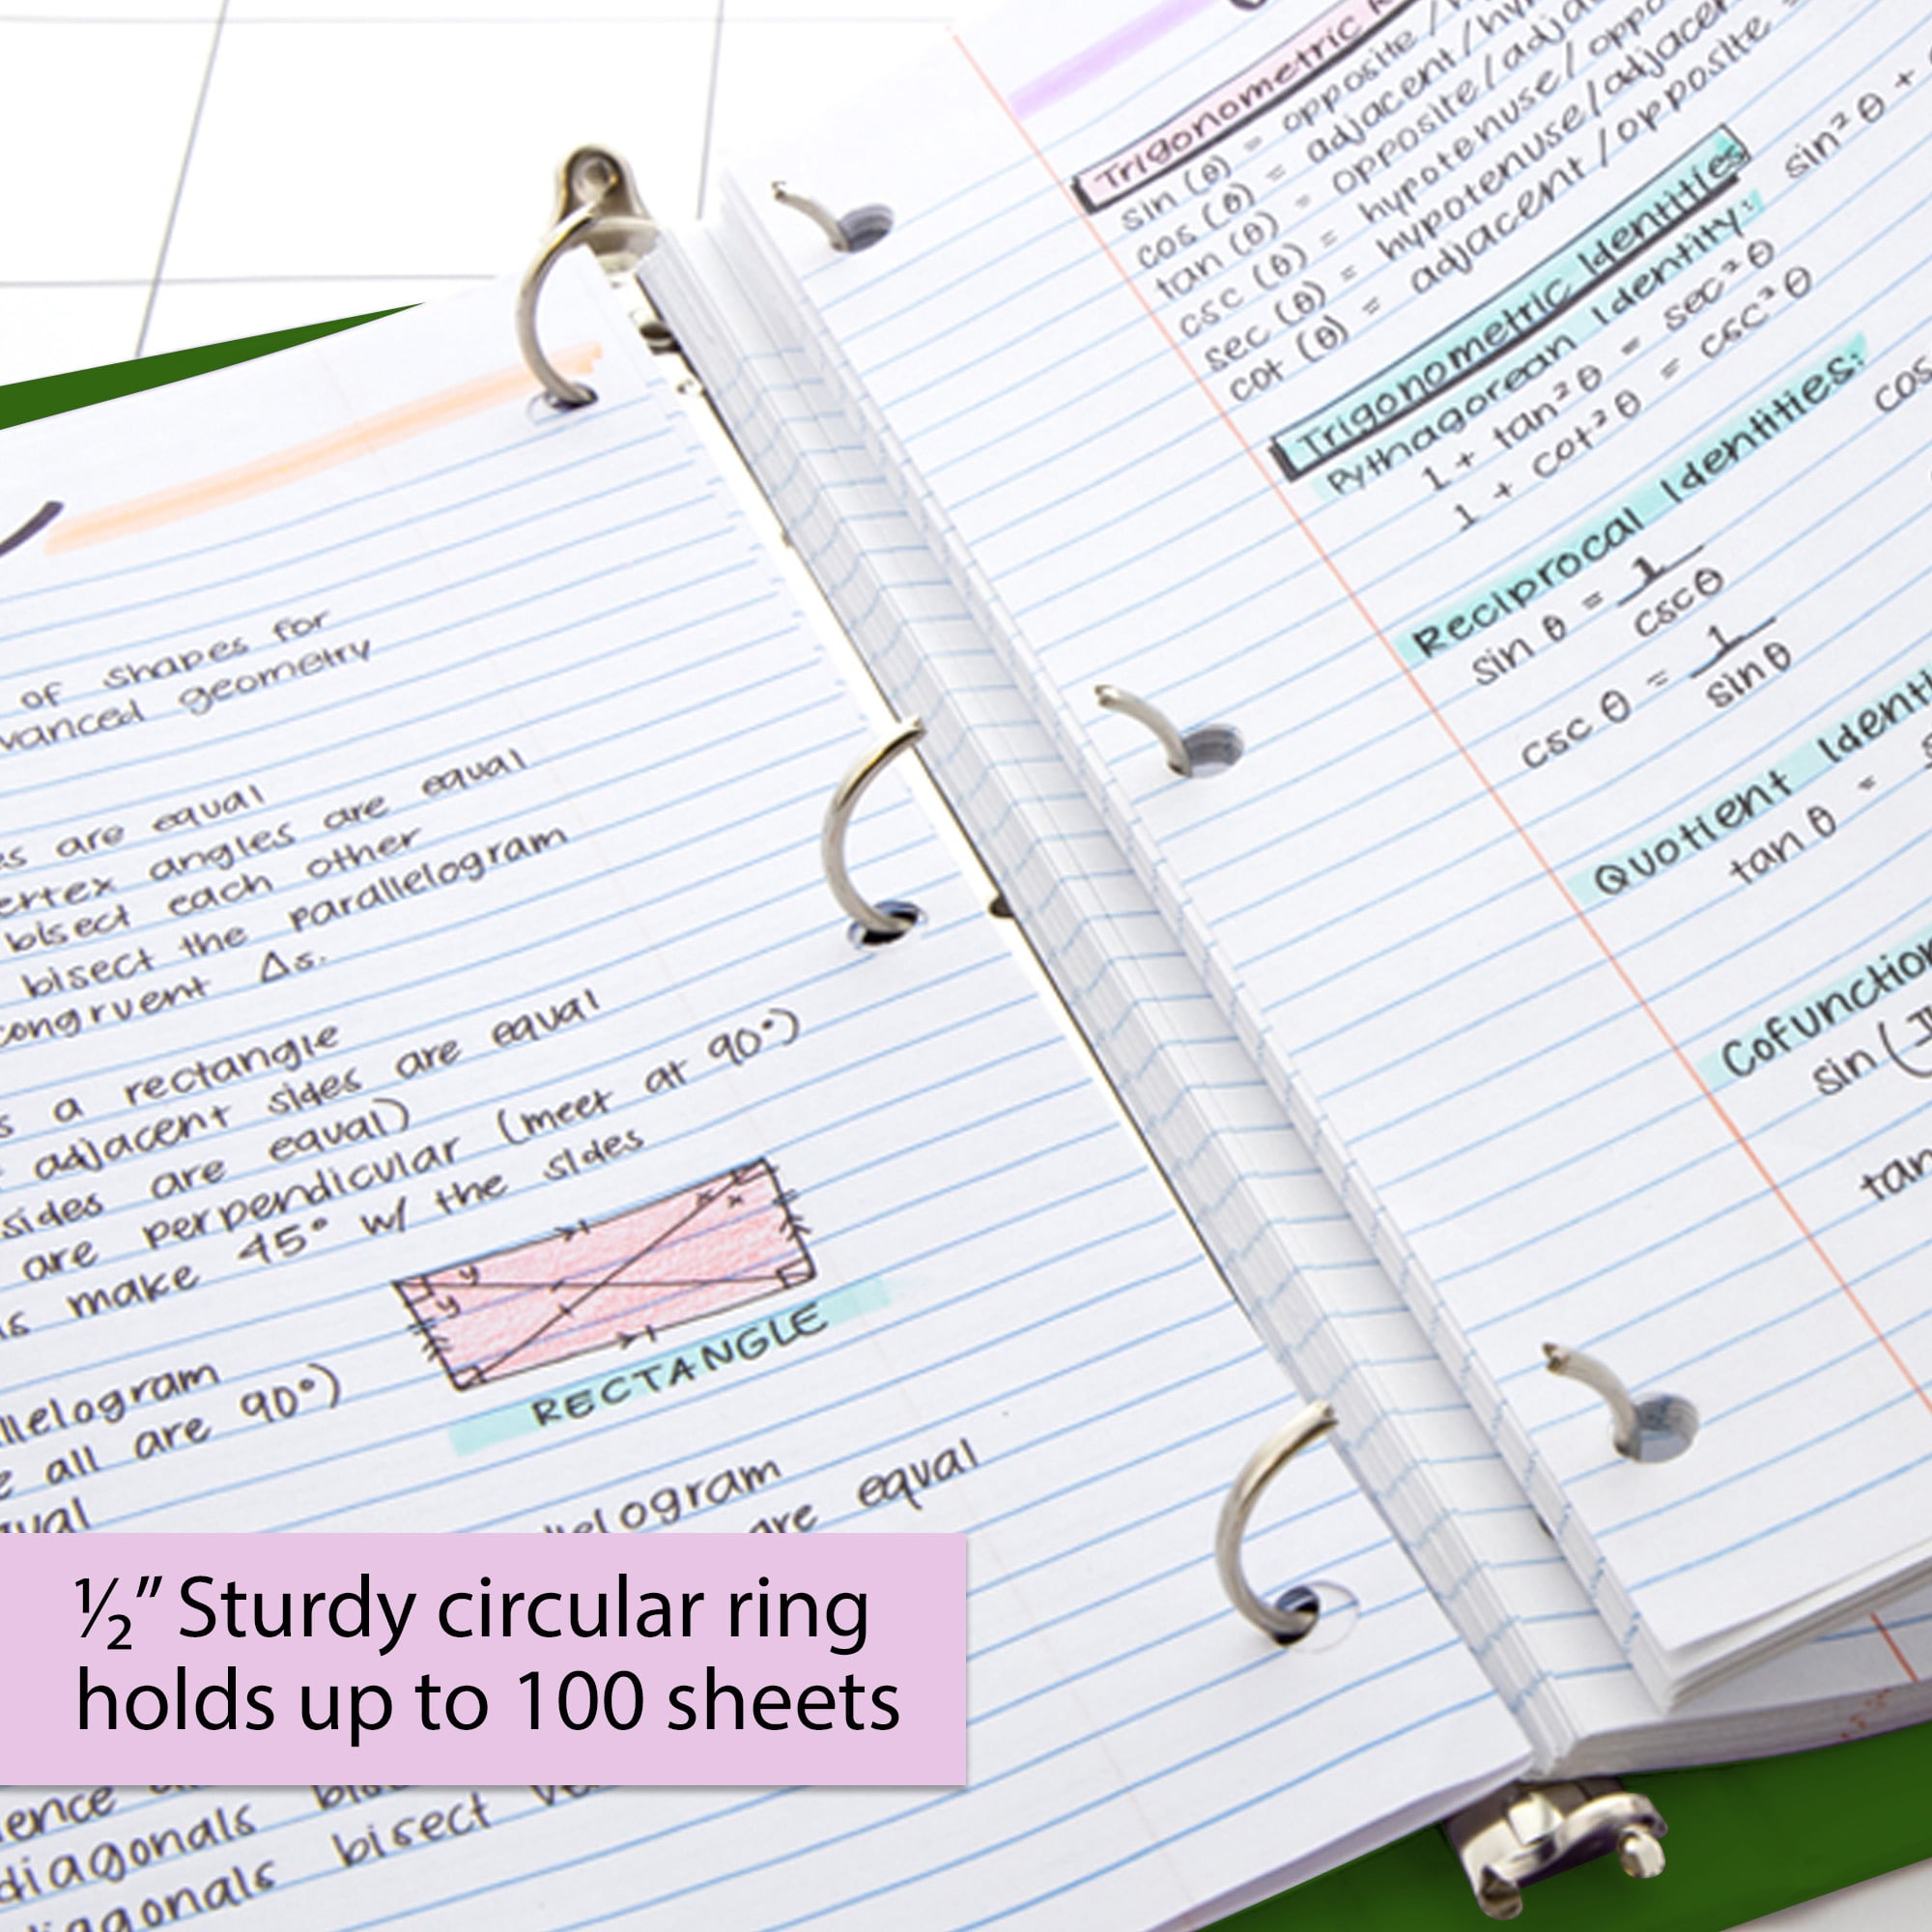 of shapes for
geometry
are equal
angles are equal
bisect each other
bisect the parallelogram
congruent Δs.
a rectangle
adjacent sides are equal
sides are equal)
are perpendicular (meet at 90°)
make 45° w/ the sides
y
y
x
x
RECTANGLE
all are 90°)
are equal
diagonals
bisect
Trigonometric
sin (θ) = opposite /
cos (θ) = adjacent /
tan (θ) = opposite /
csc (θ) = hypotenuse /
sec (θ) = hypotenuse /
cot (θ) = adjacent / opposite
Trigonometric Identities
Pythagorean Identity:
sin² θ +
1 + tan² θ = sec² θ
1 + cot² θ = csc² θ
Reciprocal Identities:
sin θ = 1 / csc θ
cos
csc θ = 1 / sin θ
Quotient
tan θ =
sin (
tan
½" Sturdy circular ring
holds up to 100 sheets